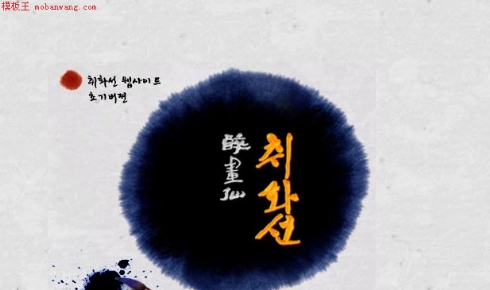 模板王 mobanwang.com
취화선 웹사이트
초기버젼
醉畫仙
취화선